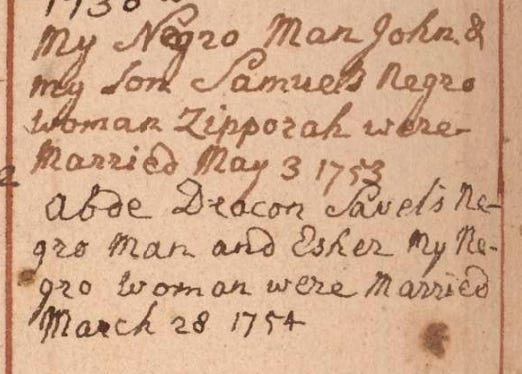 My Negro Man John &
my Son Samuel's Negro
woman Zipporah were
Married May 3 1753
Abde Deacon Savel's Ne-
gro Man and Esher My Ne-
gro woman were Married
March 28 1754